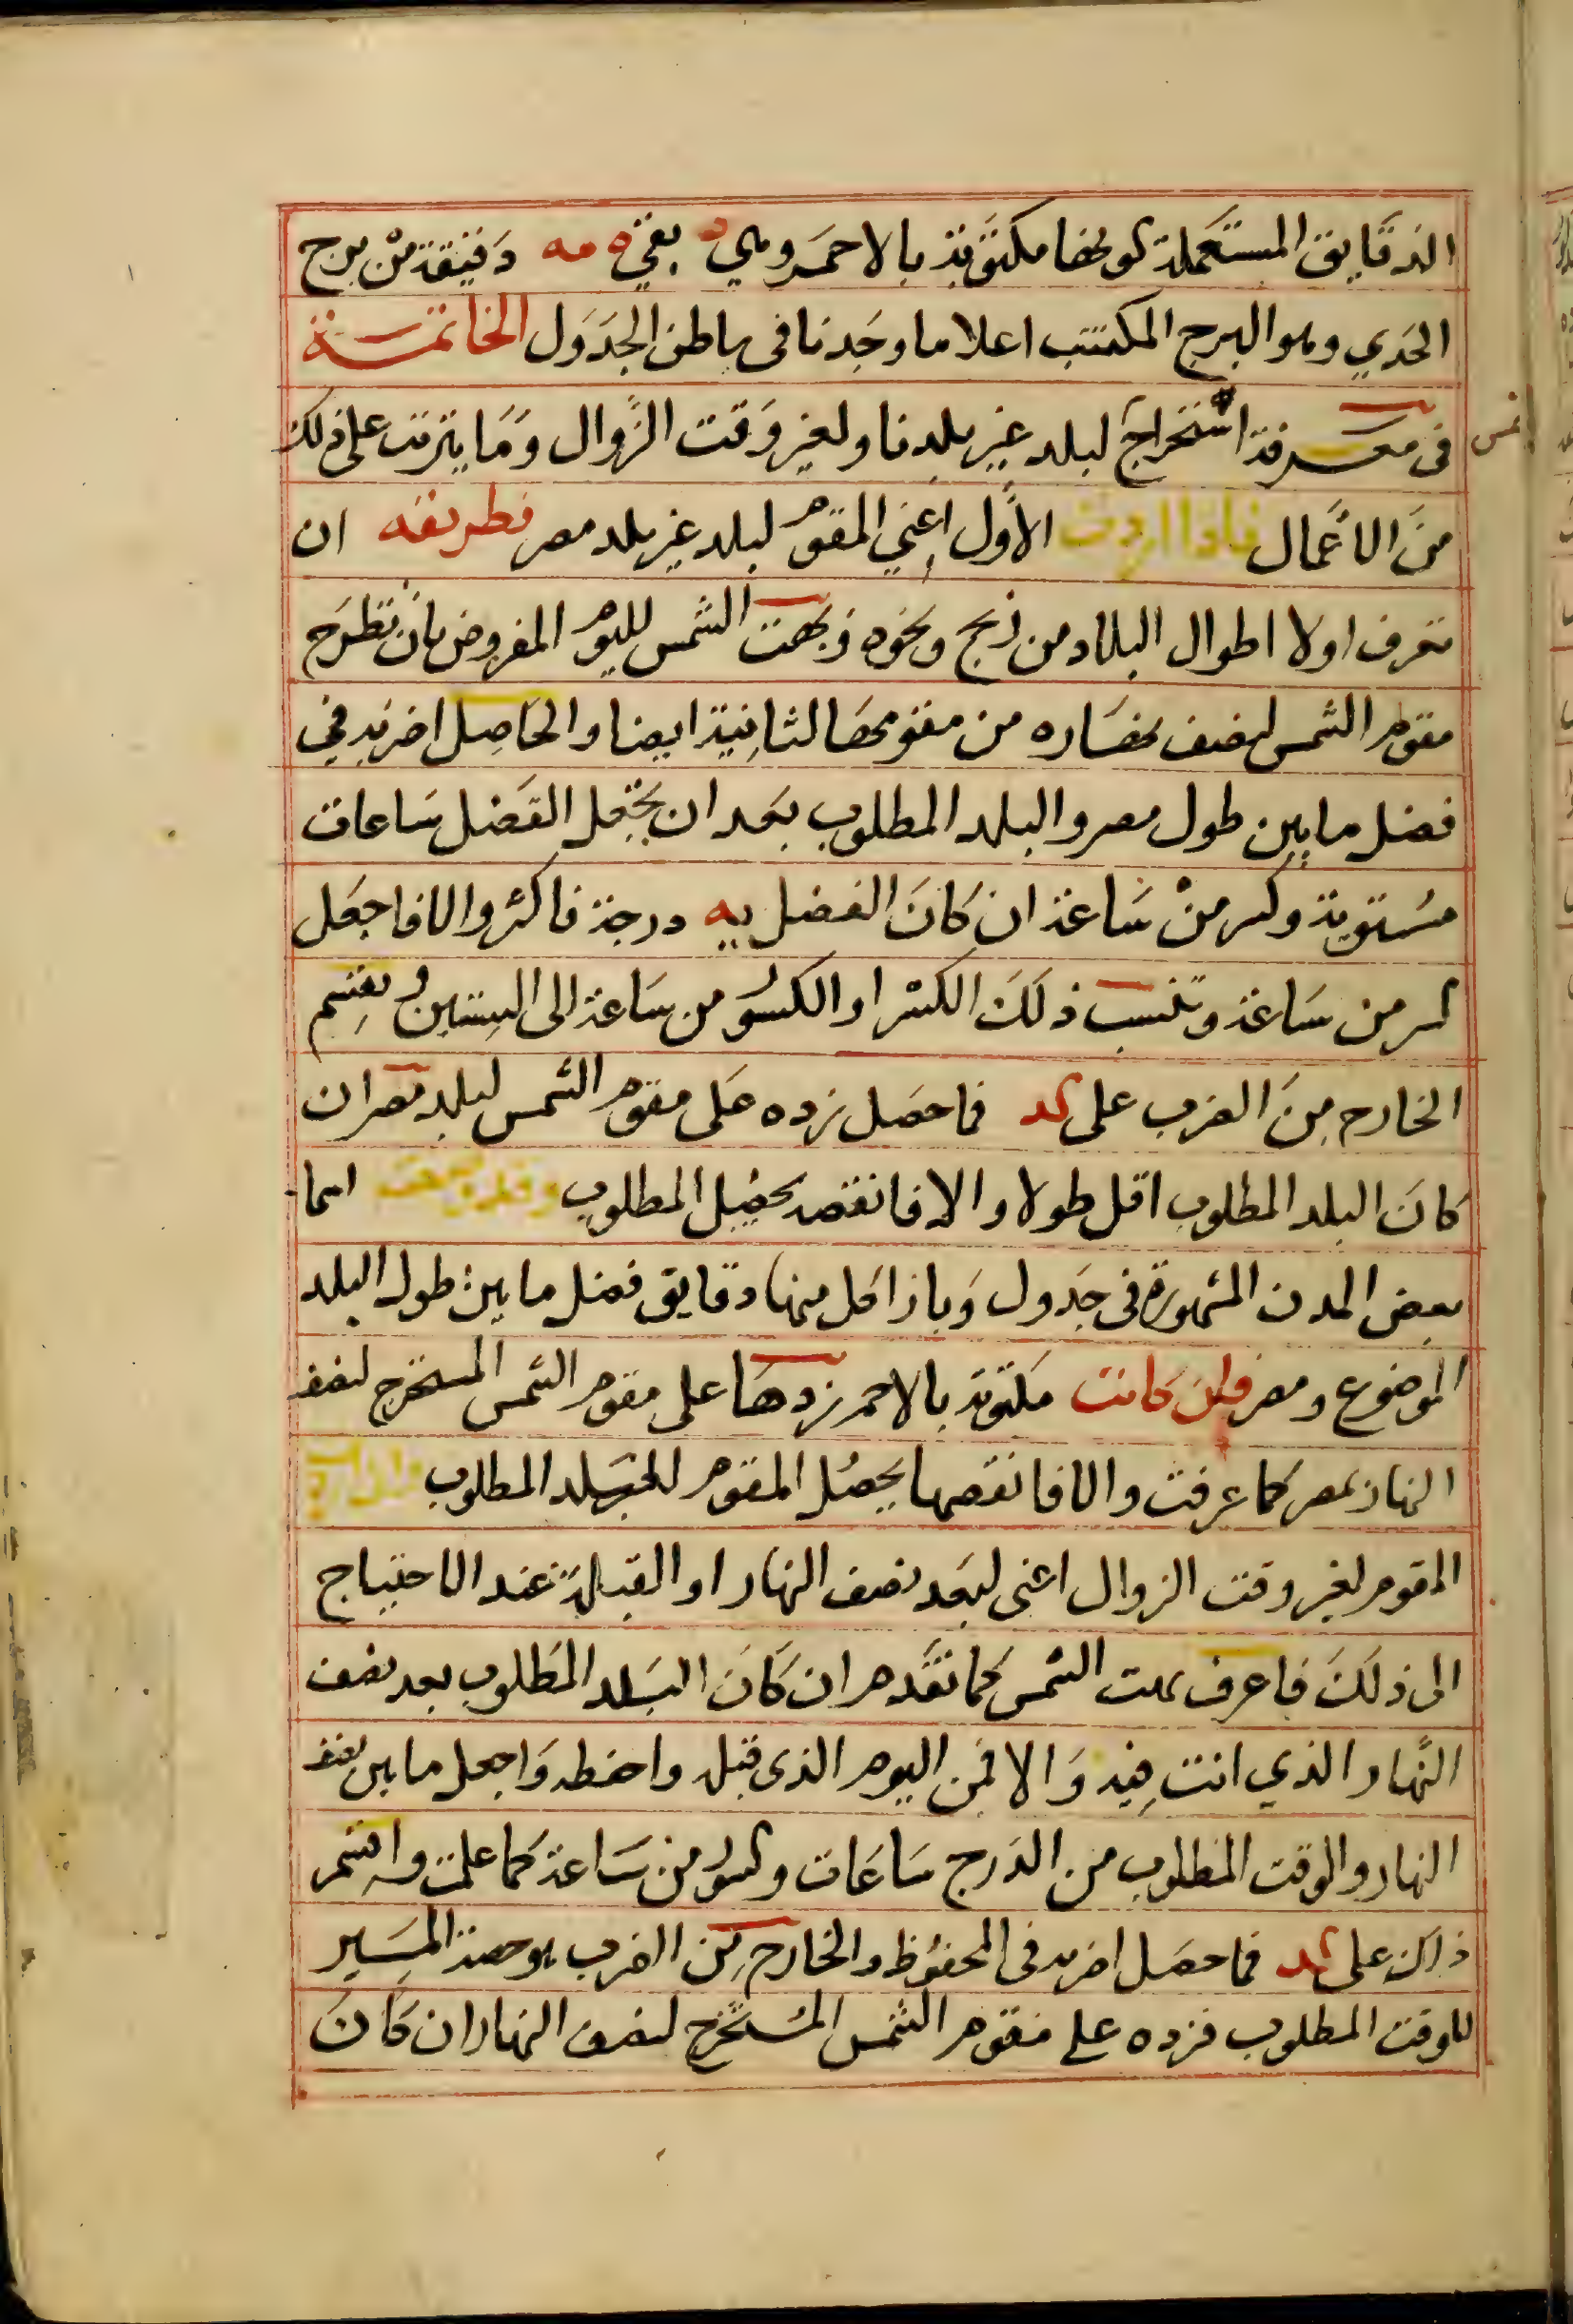 الدقايق المستعملة كونها مكتوبة بالاحمر وهي د بقي ه مه دقيقة من برج
الجدي وهو البرج المكتتب اعلا ما وجدنا في باطن الجدول الخاتمة
في معرفة استخراج لبلد غير بلدنا ولغير وقت الزوال وما يترتب على ذلك
شمس
من الاعمال فاذا اردت الاول اعني المقوم لبلد غير بلد مصر فطريقه ان
تعرف اولا اطوال البلاد من زيج ونحوه وبهت الشمس لليوم المفروض بان تطرح
مقوم الشمس لنصف نهاره من مقومها لثانية ايضا والحاصل اضربه في
فضل ما بين طول مصر والبلد المطلوب بعد ان تجعل الفضل ساعات
مستوية وكسر من ساعة ان كان الفضل يه درجة فاكثر والا فاجعل
كسر من ساعة وتنسب ذلك الكسر او الكسور من ساعة الى الستين وتقسم
الخارج من الضرب على كد فما حصل زده على مقوم الشمس لبلد مصر ان
كان البلد المطلوب اقل طولا والا فانقصه يحصل المطلوب وقد وضعت اسما
بعض المدن المشهورة في جدول وبازا كل منها دقايق فضل ما بين طول البلد
الموضوع ومصر فان كانت مكتوبة بالاحمر زدها على مقوم الشمس المستخرج لنصف
النهار بمصر كما عرفت والا فانقصها يحصل المقوم للبلد المطلوب واذا اردت
المقوم لغير وقت الزوال اعني لبعد نصف النهار او القبلة عند الاحتياج
الى ذلك فاعرف بهت الشمس كما تقدم ان كان البلد المطلوب بعد نصف
النهار الذي انت فيه والا فمن اليوم الذي قبله واحفظه واجعل ما بين نصف
النهار والوقت المطلوب من الدرج ساعات وكسور من ساعة كما علمت واقسم
ذلك على كد فما حصل اضربه في المحفوظ والخارج من الضرب هو حصة المسير
للوقت المطلوب فزده على مقوم الشمس المستخرج لنصف النهار ان كان